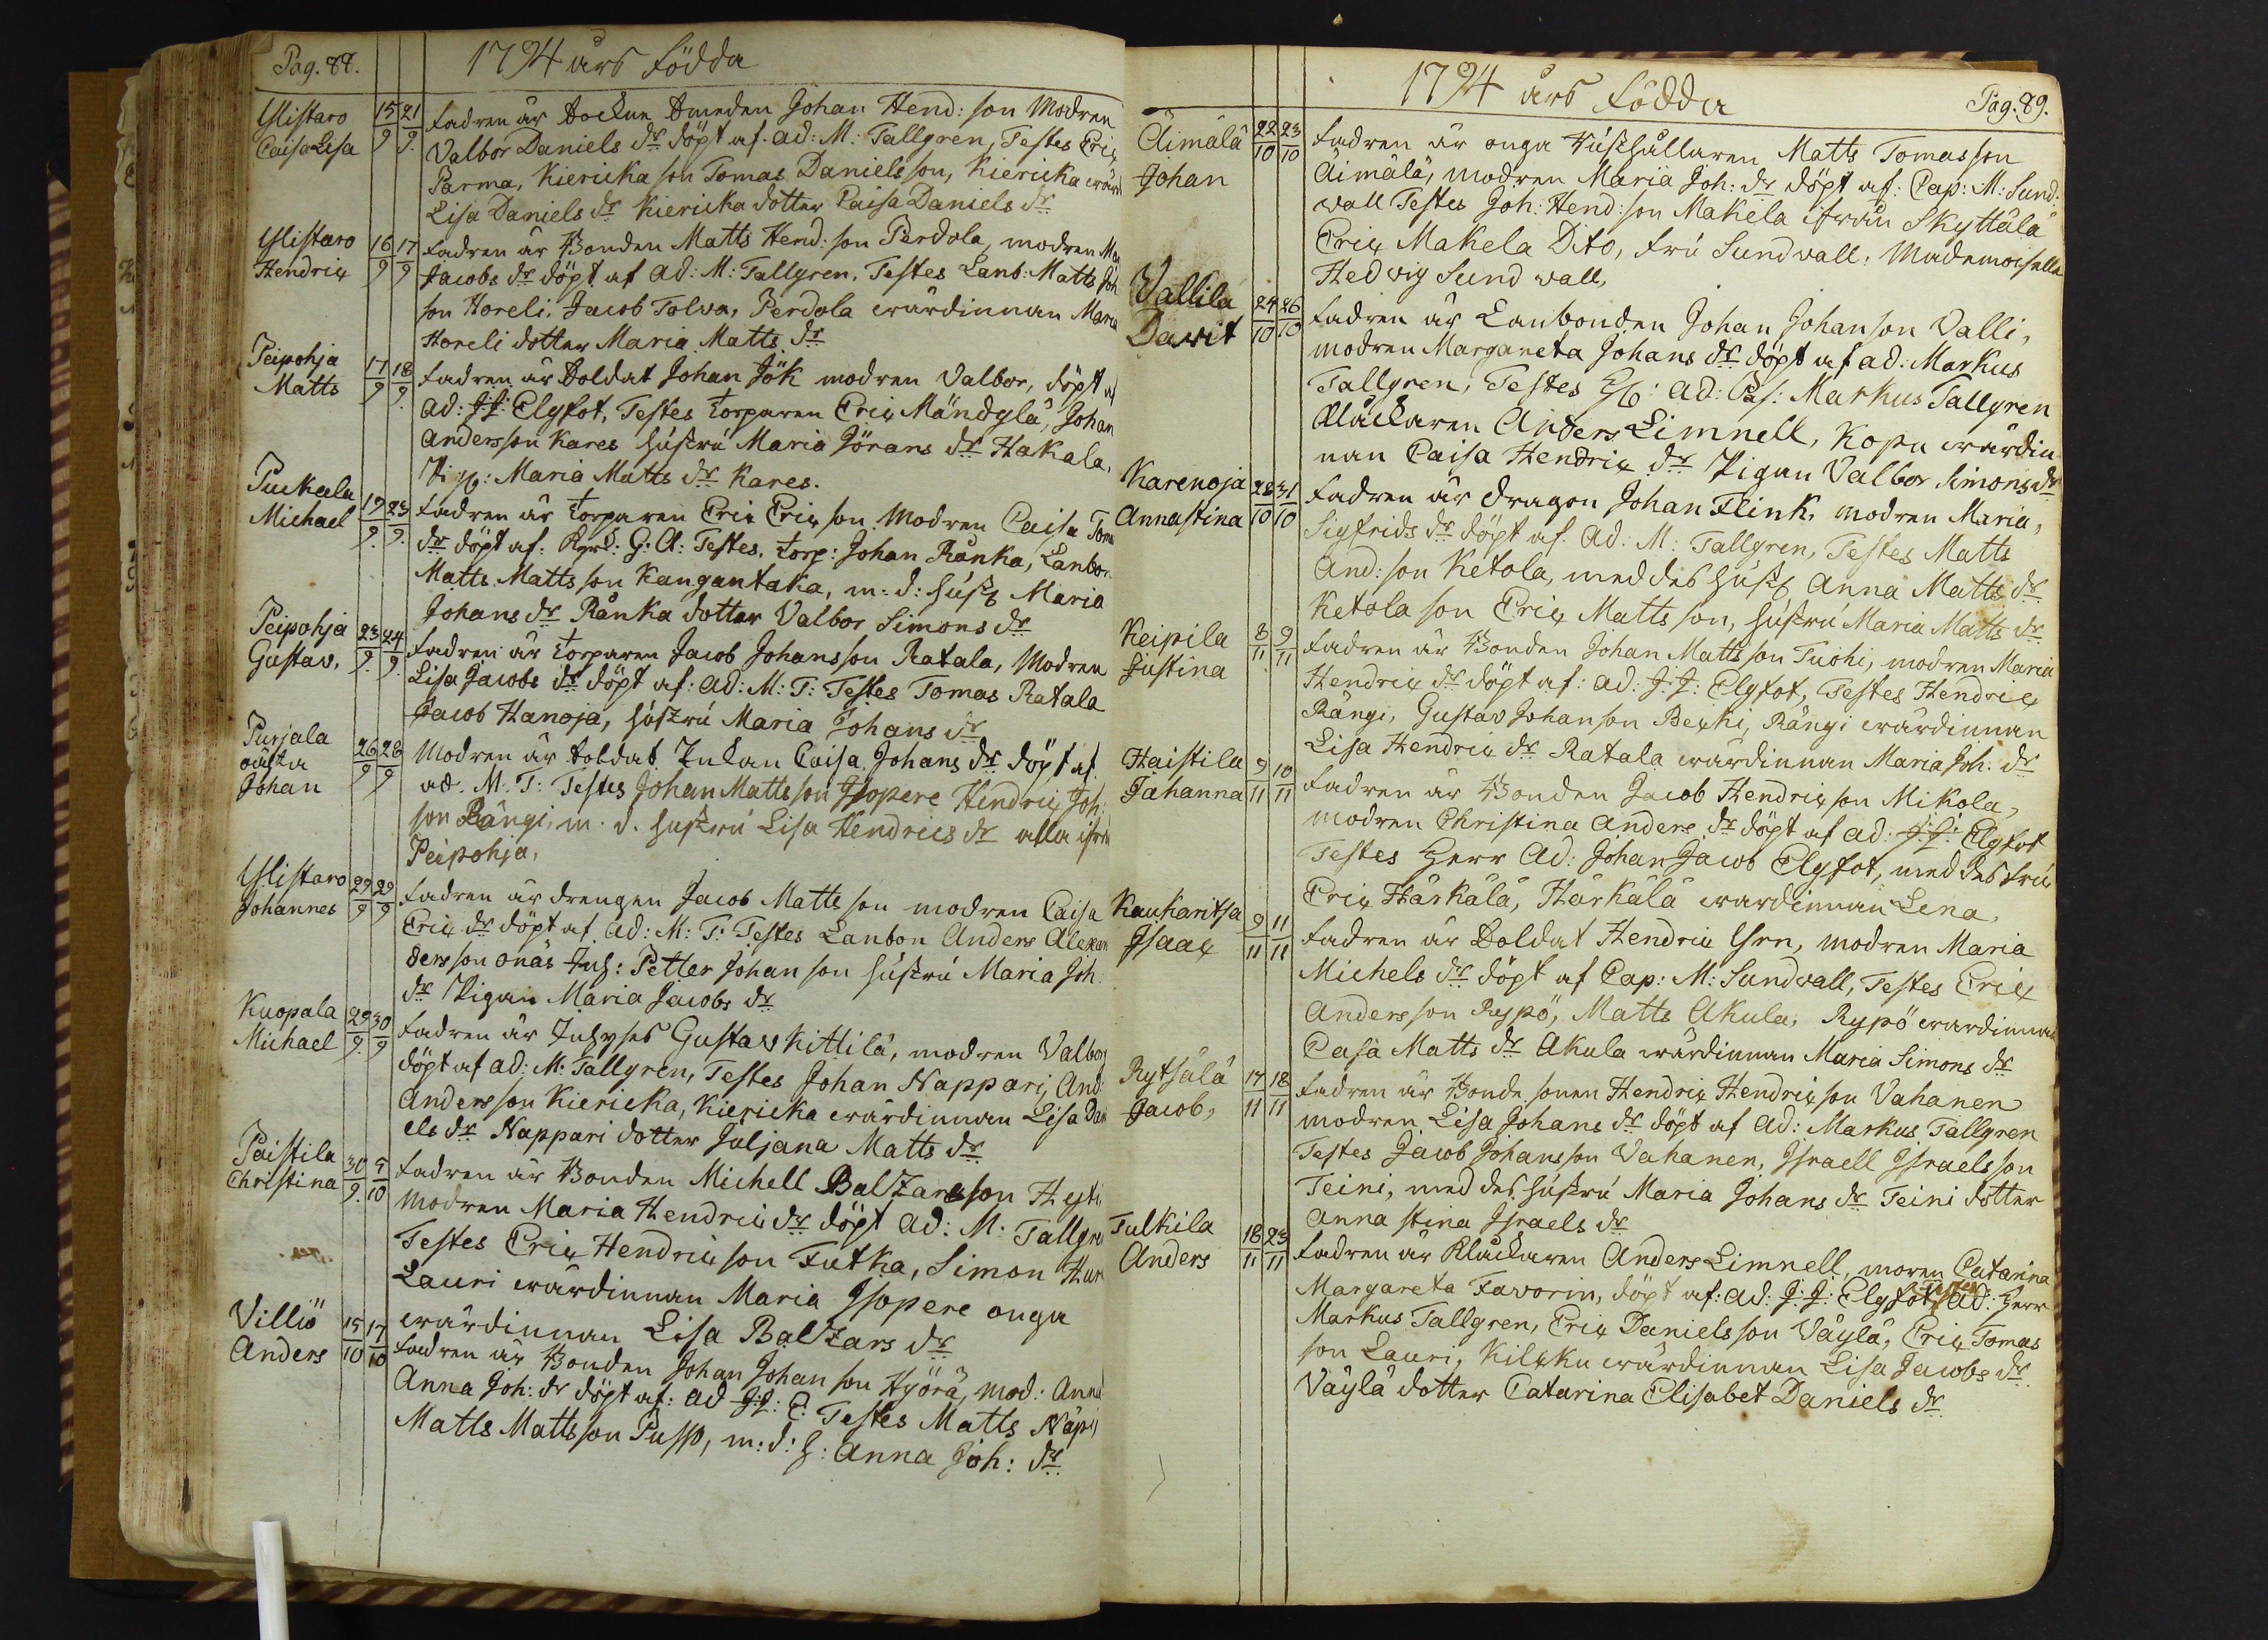 Pag. 88.
1794 års födda
Ylistaro 15/9 21/9 fadren är Sockne Smeden Johan Hend: son Modren
Caisa Lisa Valbor Daniels dr döpt af. ad: M. Tallgren, Testes Eric
Parma, Kiericka son Tomas Danielsson, Kiericka wärd
Lisa Daniels dr Kiericka dotter Caisa Daniels dr
Ylistaro 16/9 17/9 fadren är Bonden Matts Hend: son Perdola, modren
Hendric Jacobs dr döpt af ad: M: Tallgren. Testes Lanb: Matts Joh
son Horeli. Jacob Tolva, Perdola wärdinnan Maria
Horeli dotter Maria Matts dr
Peipohja 17/9 18/9 fadren är Soldat Johan Jök modren Valbor, döpt af
Matts ad: J: J: Elgfot, Testes torparen Eric Mändylä, Johan
Andersson Kares hustru Maria Jörans dr Hakala,
Pig: Maria Matts dr Kares.
Puckala 19/9 23/9 fadren är torparen Eric Ericson Modren Caisa Tom
Michael dr döpt af: G: A: Testes. torp: Johan Ränka, Lanbon
Matts Mattsson Kangantaka, m: d: hust Maria
Johans dr Ränka dotter Valbor Simons dr
Peipohja 23/9 24/9 fadren är torparen Jacob Johansson Ratala, Modren
Gustav, Lisa Jacobs dr döpt af: ad: M: T: Testes Tomas Ratala
Jacob Hanoja, hustru Maria Johans dr
Purjala 26/9 28/9 Modren är Soldat Enkan Caisa Johans dr döpt af
Johan ad. M. T: Testes Johan Mattsson Isopere Hendric Joh:
son Rängi, m. d. hustru Lisa Hendrics dr alla ifrån
Peipohja,
Ylistaro 29/9 29/9 fadren är drengen Jacob Mattsson modren Caisa
Johannes Eric dr döpt af ad: M: T: Testes Lanbon Anders Alexan
dersson onäs Inh: Petter Johanson hustru Maria Joh.
dr Pigan Maria Jacobs dr
Kuopala 29/9 30/9 fadren är Inhyses Gustav Kittilä, modren Valbor
Michael döpt af ad: M: Tallgren, Testes Johan Nappari, And:
Andersson Kiericka, Kiericka wärdinnan Lisa Dani
els dr Nappari dotter Juljana Matts dr
Paistila 30/9 5/10 fadren är Bonden Michell Baltzarsson Heyti
Christina modren Maria Hendric dr döpt ad: M. Tallgre
Testes Eric Hendricson Futka, Simon Hur
Lauri wärdinnan Maria Isopere onga
wärdinnan Lisa Baltzars dr
Villiö 15/10 17/10 fadren är Bonden Johan Johanson Hyörä, mod: Anna
Anders Anna Joh: dr döpt af: ad J: J: E: Testes Matts Näpi
Matts Mattsson Pusso, m: d: h: Anna Joh: dr
1794 års födda
Pag. 89.
Äimälä 22/10 23/10 fadren är onga Rusthållaren Matts Tomasson
Johan Äimälä, modren Maria Joh: dr döpt af: Cap: M: Sund:
wall Testes Joh: Hend: son Makela ifrån Skyttälä
Eric Makela Dito, fru Sundvall. Mademoiselle
Hedvig Sundwall,
Vallila 24/10 26/10 fadren är Lanbonden Johan Johanson Valli,
Davit modren Margareta Johans dr döpt af ad: Markus
Tallgren, Testes H: ad: Pas: Markus Tallgren
Klåckaren Anders Limnell, Kopu wärdin
nan Caisa Hendric dr Pigan Valbor Simons dr
Karenoja 28/10 31/10 fadren är dragon Johan Flink, modren Maria,
Annastina Sigfrids dr döpt af: Ad: M: Tallgren, Testes Matts
And: son Ketola, med des hust Anna Matts dr
Ketola son Eric Mattsson, hustru Maria Matts dr
Keipila 8/11 9/11 fadren är Bonden Johan Mattsson Tuohi, modren Maria
Justina Hendric dr döpt af: ad: J: J: Elgfot, Testes Hendric
Rängi, Gustav Johanson Becki, Rängi wärdinnan
Lisa Hendric dr Ratala wärdinnan Maria Joh: dr
Haistila 9/11 10/11 fadren är Bonden Jacob Hendricson Mikola,
Jahanna modren Christina Anders dr döpt af ad: J: J: Elgfot
Testes Herr Ad: Johan Jacob Elgfot, med des fru
Eric Härkälä, Härkälä wardinnan Lena,
Kaukaritsa 9/11 11/11 fadren är Soldat Hendric Yrn, modren Maria
Isaac Michels dr döpt af Cap: M: Sundvall, Testes Eric
Andersson Rypö, Matts Akula, Rypö wardinnan
Casa Matts dr Akula wärdinnan Maria Simons dr
Rytsälä 17/11 18/11 fadren är Bonde sonen Hendric Hendricson Vahanen
Jacob, modren Lisa Johans dr döpt af Ad: Markus Tallgren
Testes Jacob Johansson Vahanen, Israell Israelsson
Teini, med des hustru Maria Johans dr Teini dotter
Anna stina Israels dr
Tulkila 18/11 23/11 fadren är Klåckaren Anders Limnell, moren Catarina
Anders Margareta Favorin, döpt af: ad: J: J: Elgfot, Testes ad: Herr
Markus Tallgren, Eric Danielsson Väylä, Eric Tomas
son Lauri, Kilcku wärdinnan Lisa Jacobs dr
Väylä dotter Catarina Elisabet Daniels dr